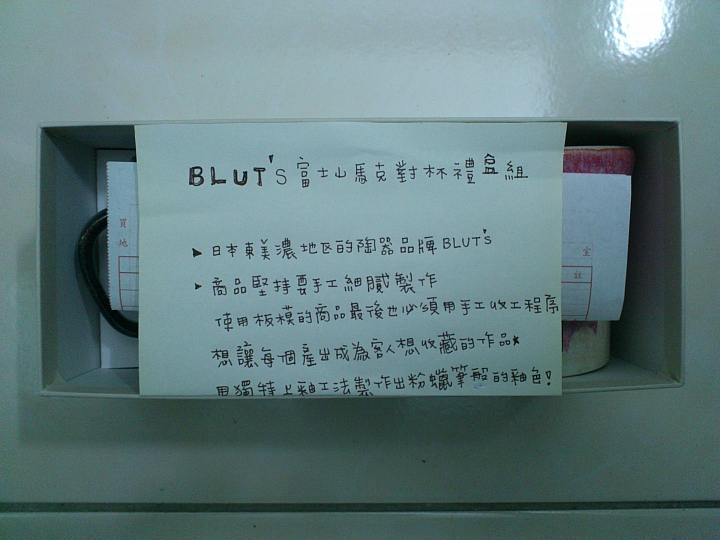 BLUT'S 富士山馬克對杯禮盒組
▶ 日本東美濃地区的陶器品牌 BLUT'S
▶ 商品堅持要手工細膩製作
使用板模的商品最後也必須用手工收工程序
想讓每個產出成為客人想收藏的作品★
用獨特上釉工法製作出粉蠟筆般的釉色!
買
地
室
註